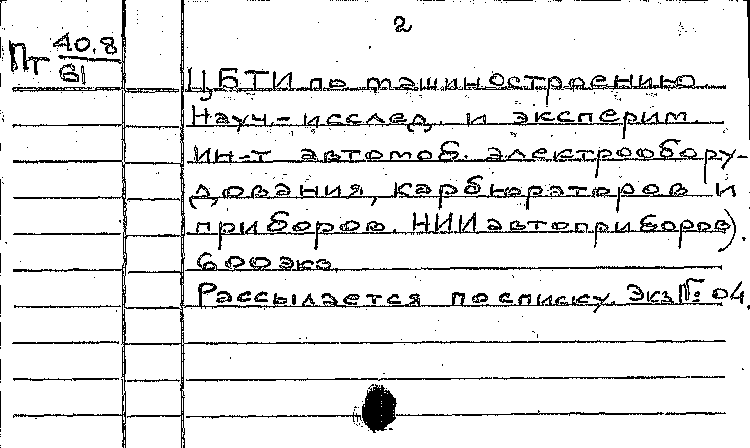 2
Пт 40.8
61
ЦБТИ по машиностроению
Науч.-исслед. и эксперим.
ин-т автомоб. электрообору-
дования, карбюраторов и
приборов. НИИавтоприборов).
600экз.
Рассылается по списку. Экз№ 04.